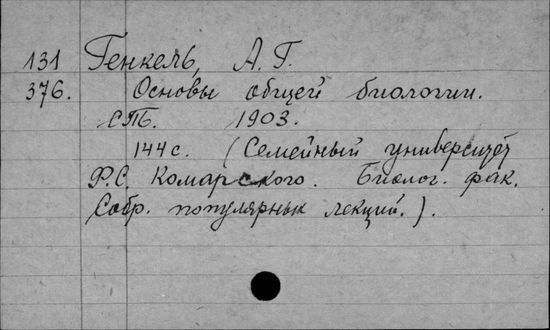 131 Генкель, А. Г.
376. Основы общей биологии.
СПб. 1903.
144 с. (Семейный университет
Ф.С. Комарского. Биолог. фак.
Собр. популярных лекций.).